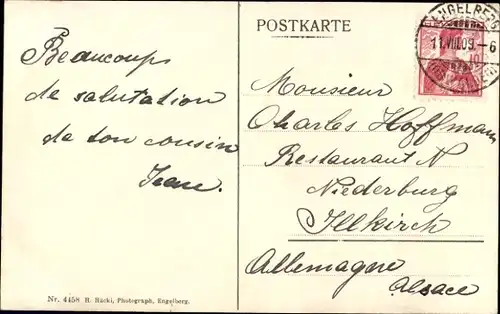 POSTKARTE
ENGELBERG
11.VIII.09.-6
10
Beaucoups
de salutation
de ton cousin
Monsieur
Charles Hoffmann
Restaurant N
Niederburg
Illkirch
Allemagne
Alsace
Nr. 4458 H. Häcki, Photograph, Engelberg.